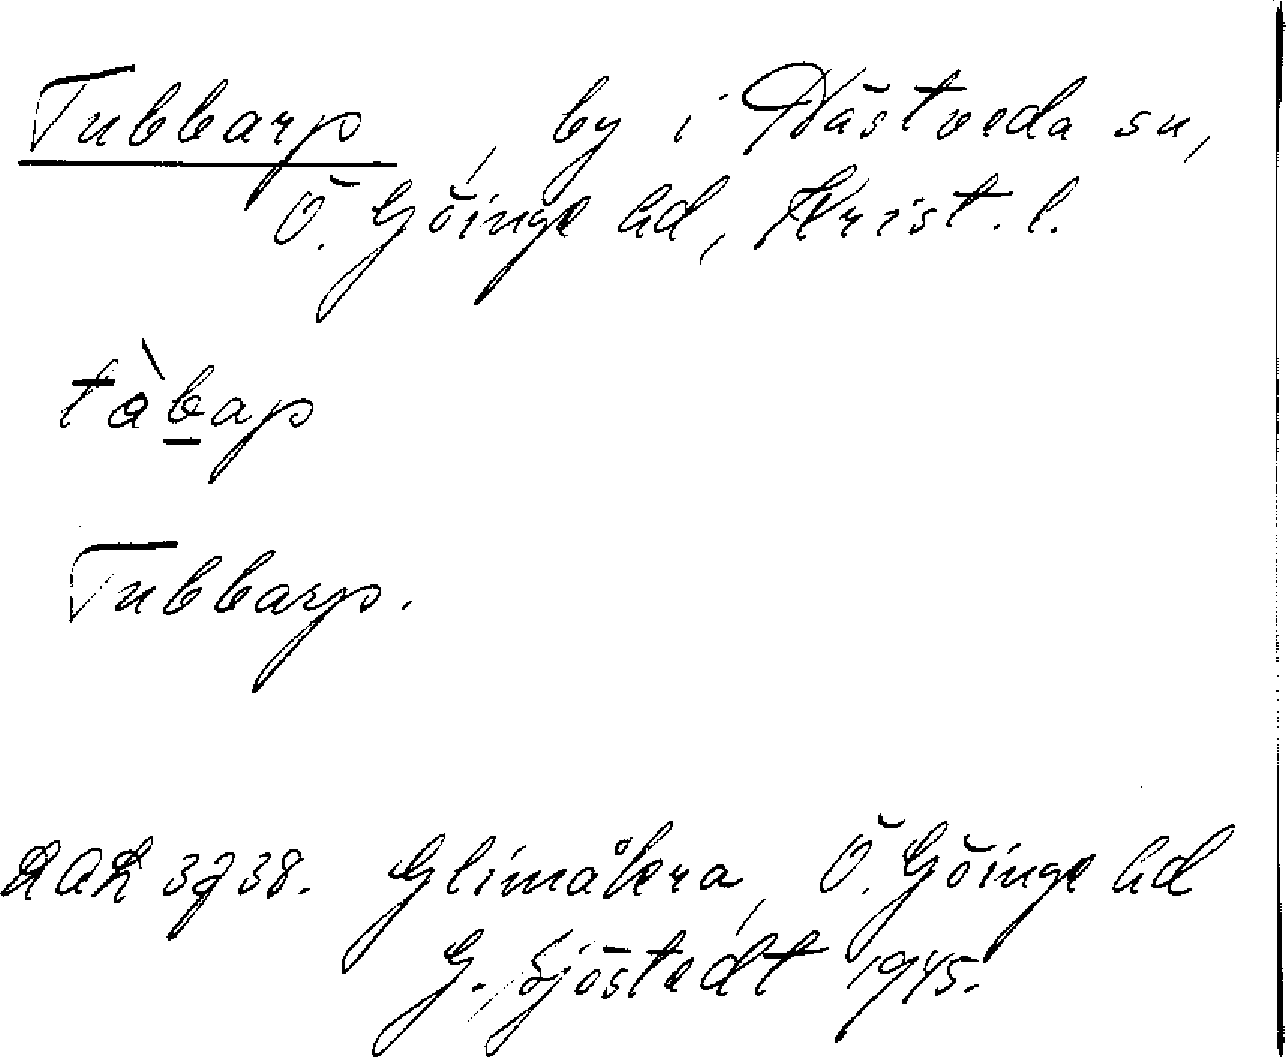 Tubbarp, by i Hästveda sn,
Ö. Göinge hd, Krist. l.
tàb̲ap
Tubbarp.
3738. Glimåkra, Ö. Göinge hd
G. Sjöstedt 1945.